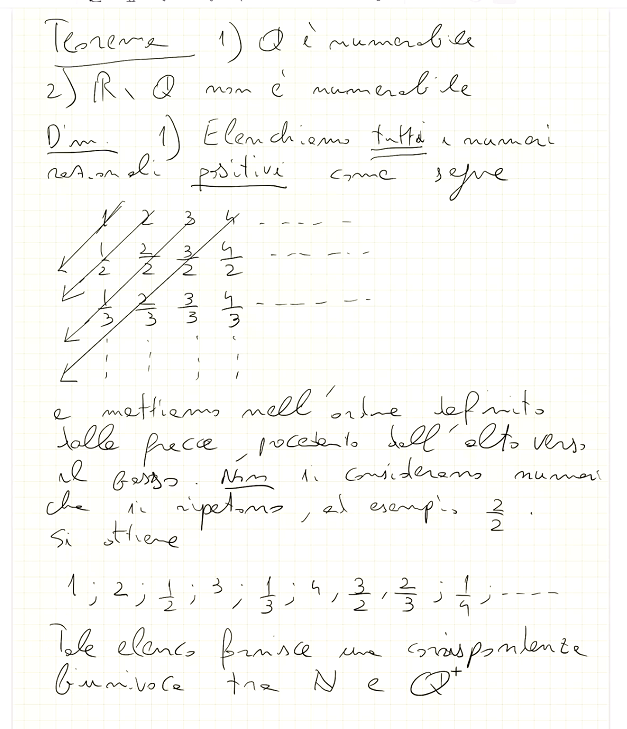 Teorema 1) Q è numerabile
2) R \ Q non è numerabile
Dim. 1) Elenchiamo tutti i numeri
razionali positivi come segue
1 2 3 4 -----
1/2 2/2 3/2 4/2 -----
1/3 2/3 3/3 4/3 -----
e mettiamo nell'ordine definito
dalle frecce, procedendo dall'alto verso
il basso. Non si considerano numeri
che si ripetono, ad esempio 2/2.
Si ottiene
1; 2; 1/2; 3; 1/3; 4, 3/2, 2/3; 1/4; ----
Tale elenco fornisce una corrispondenza
biunivoca tra N e Q+